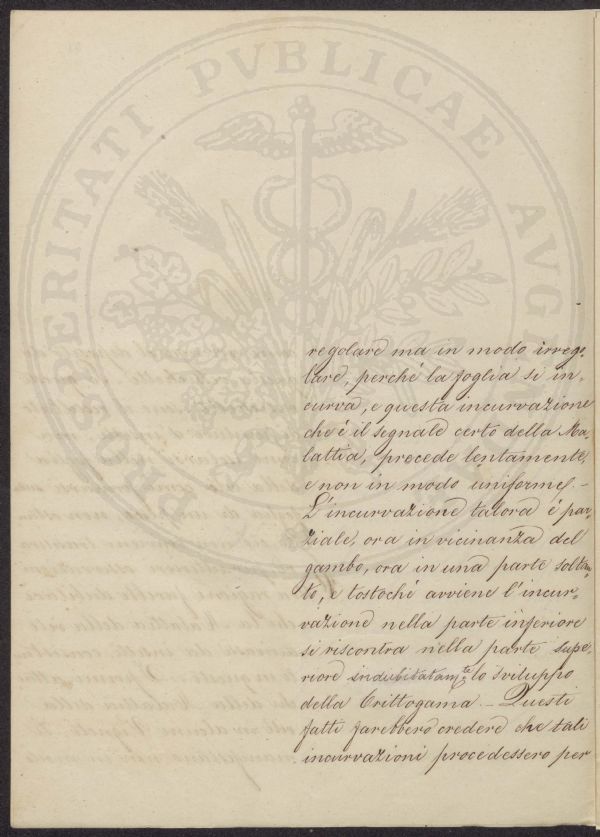 PROSPERITATI PVBLICAE AVGE
regolare ma in modo irrego-
lare, perché la foglia si in-
curva, e questa incurvazione
che é il segnale certo della Ma-
lattia, precede lentamente,
e non in modo uniforme. -
L'incurvazione talora é par-
ziale, ora in vicinanza del
gambo, ora in una parte soltan-
to, e tostoché avviene l'incur-
vazione nella parte inferiore
si riscontra nella parte supe-
riore indubitatamte lo sviluppo
della Crittogama - Questi
fatti farebbero credere che tali
incurvazioni procedessero per